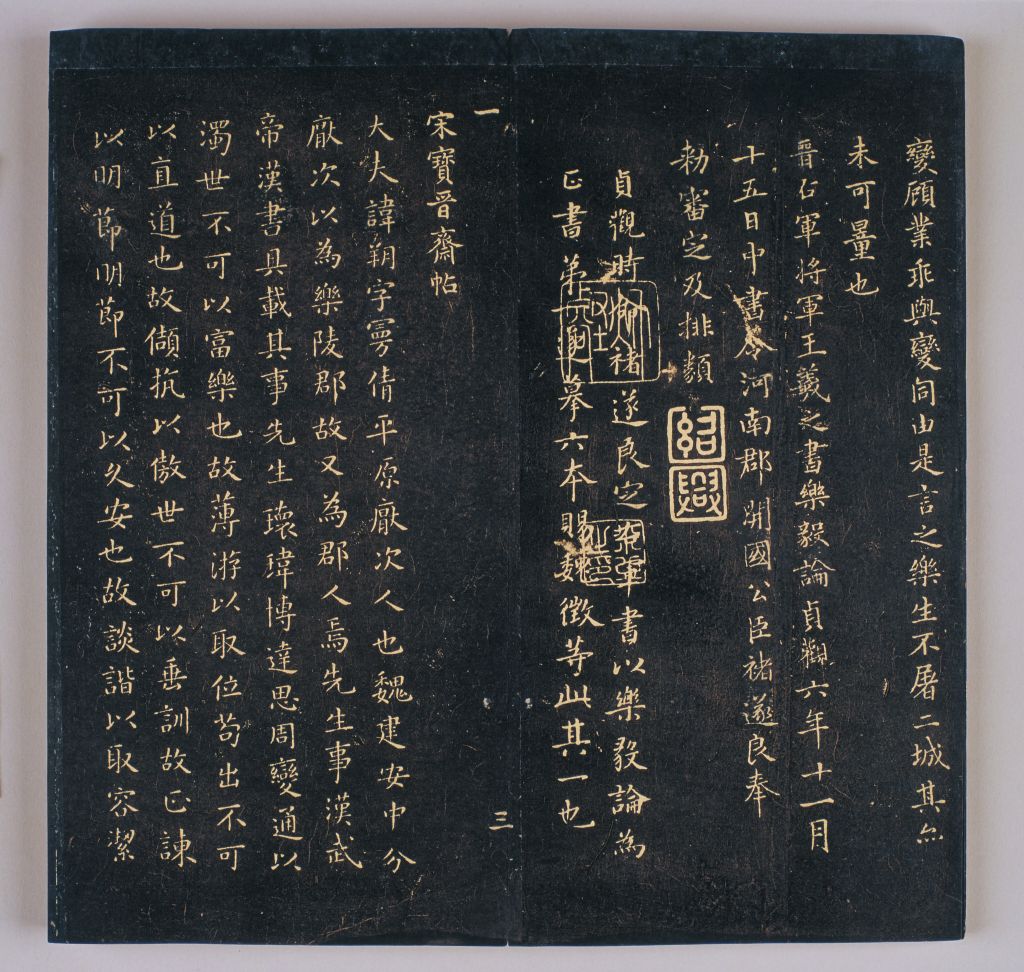 變顧業乖與變同由是言之樂生不屠二城其亦
未可量也
晉右軍將軍王羲之書樂毅論貞觀六年十一月
十五日中書令河南郡開國公臣褚遂良奉
勑審定及排類
紹興
貞觀時褚遂良定右軍書以樂毅論為
正書第一摹六本賜魏徵等此其一也
一
三
宋寶晉齋帖
大夫諱朔字曼倩平原厭次人也魏建安中分
厭次以為樂陵郡故又為郡人焉先生事漢武
帝漢書具載其事先生瓌瑋博達思周變通以
濁世不可以富樂也故薄游以取位苟出不可
以直道也故頡抗以傲世不可以垂訓故正諫
以明節明節不可以久安也故談諧以取容潔